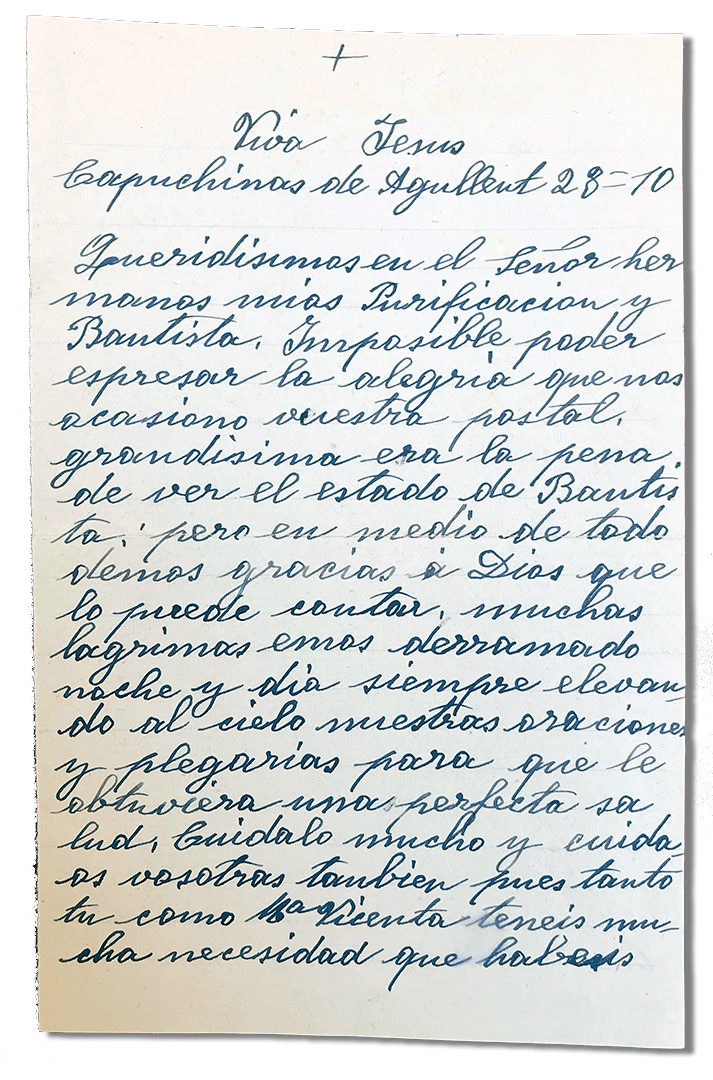 +
Viva Jesus
Capuchinas de Agullent 28=10
Queridisimos en el Señor her
manos mios Purificacion y
Bautista. Imposible poder
espresar la alegria que nos
ocasiono vuestra postal,
grandisima era la pena
de ver el estado de Bautis
ta, pero en medio de todo
demos gracias á Dios que
lo puede contar, muchas
lagrimas emos derramado
noche y dia siempre elevan
do al cielo nuestras oraciones
y plegarias para que le
obtuviera una perfecta sa
lud, Cuidalo mucho y cuida
os vosotras tanbien pues tanto
tu como Mª Vicenta teneis mu-
cha necesidad que habeis